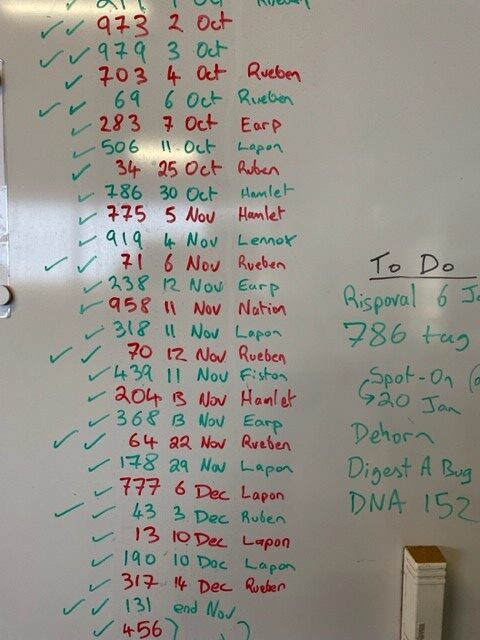 ✓ ✓ 973 2 Oct
✓ ✓ 979 3 Oct
✓ 703 4 Oct Rueben
✓ ✓ 69 6 Oct Rueben
✓ 283 7 Oct Earp
✓ 506 11 Oct Lapon
✓ 34 25 Oct Ruben
✓ 786 30 Oct Hamlet
✓ 775 5 Nov Hamlet
✓ 919 4 Nov Lennox
✓ ✓ 71 6 Nov Rueben
✓ 238 12 Nov Earp
✓ 958 11 Nov Nation
✓ 318 11 Nov Lapon
✓ ✓ 70 12 Nov Rueben
✓ 439 11 Nov Fiston
✓ 204 13 Nov Hamlet
✓ 368 13 Nov Earp
✓ ✓ 64 22 Nov Rueben
✓ 178 29 Nov Lapon
✓ 777 6 Dec Lapon
✓ ✓ 43 3 Dec Ruben
✓ 13 10 Dec Lapon
✓ 190 10 Dec Lapon
✓ 317 14 Dec Rueben
✓ ✓ 131 end Nov
✓ 456
To Do
Risporal 6
786 tag
Spot-On
→20 Jan
Dehorn
Digest A Bug
DNA 152